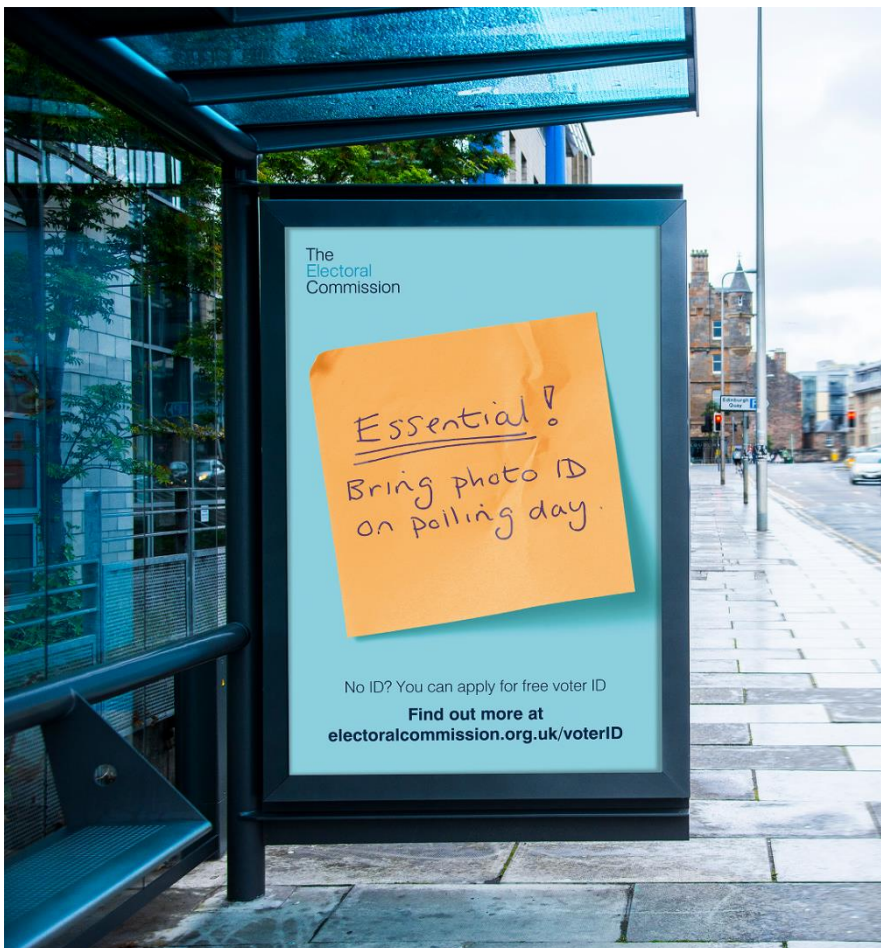 The
Electoral
Commission
Essential!
Bring photo ID
on polling day.
No ID? You can apply for free voter ID
Find out more at
electoralcommission.org.uk/voterID
Edinburgh
Quay
P